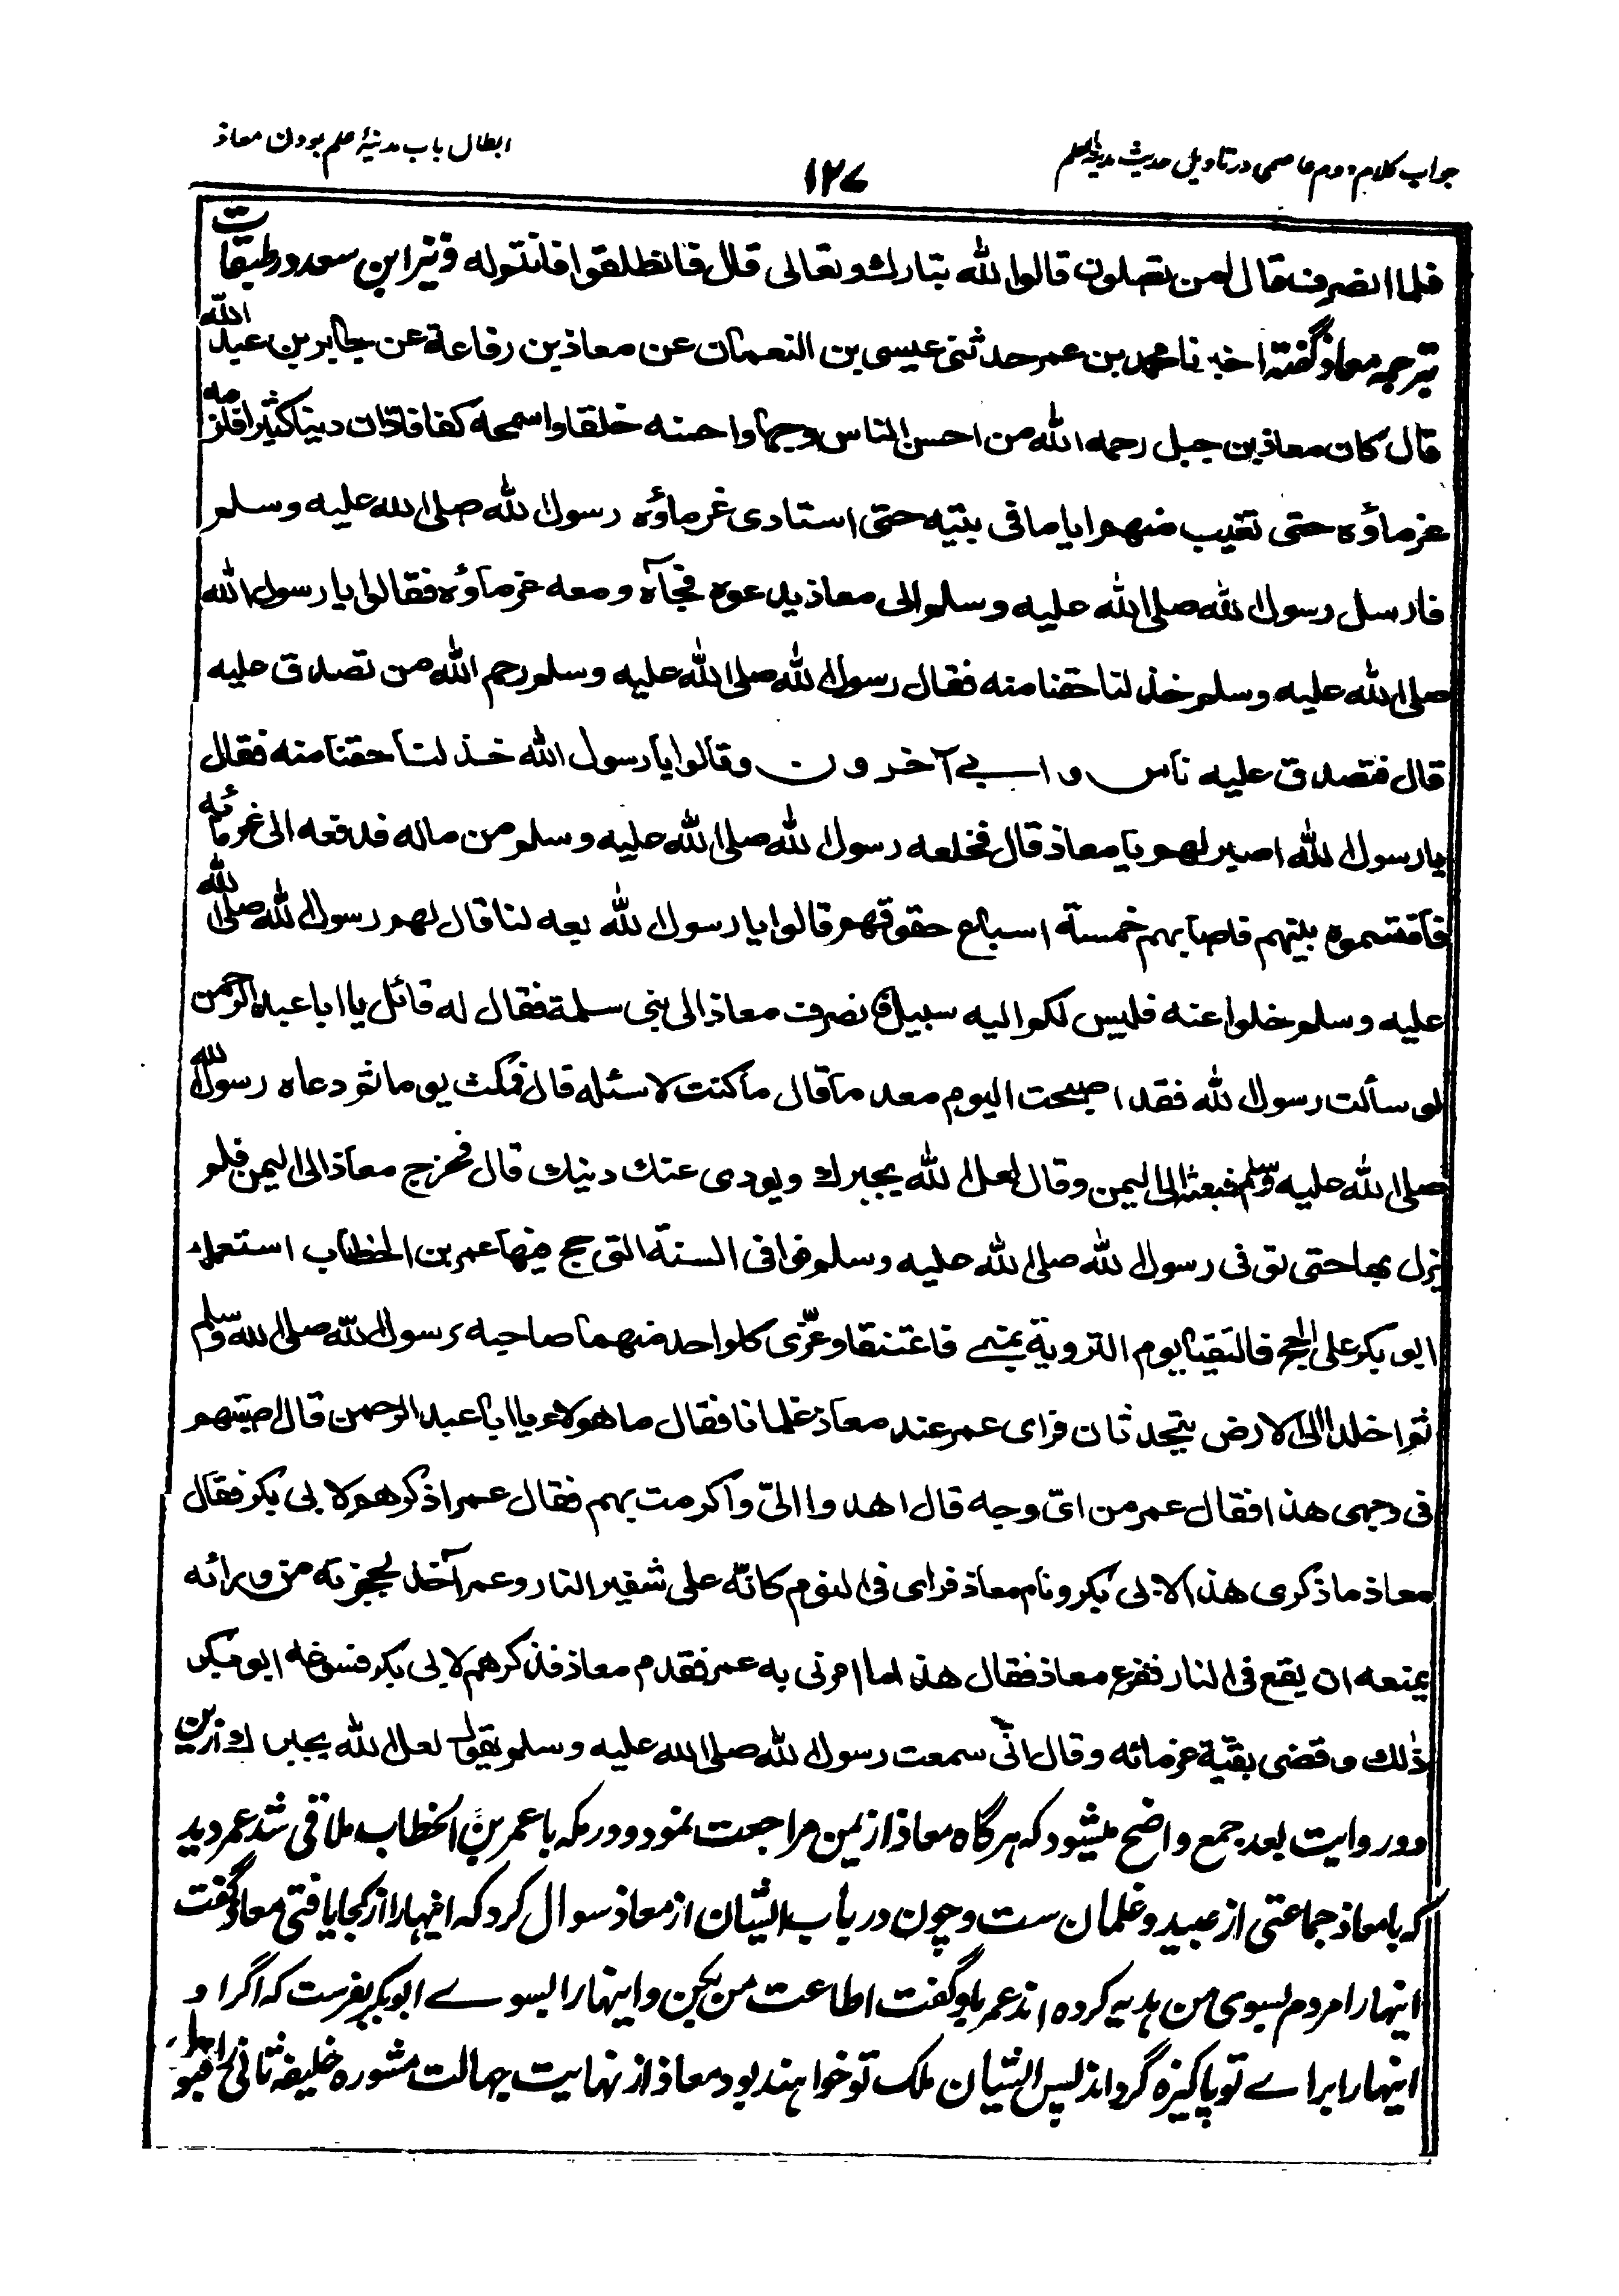 جواب کلام دوم عاصمی در تاویل حدیث مدینة العلم
۱۲۷
ابطال باب مدینۀ علم بودن معاذ
فلما انصرف قال لمن تصلون قالوا لله تبارك وتعالى قال فانطلقوا فانتم له و نیز ابن سعد در طبقات
بترجمه معاذ گفته اخبرنا محمد بن عمر حدثنی عیسی بن النعمان عن معاذ بن رفاعة عن جابر بن عبد الله
قال كان معاذ بن جبل رحمه الله من احسن الناس وجها واحسنه خلقا واسمحه كفا فادّان دينا كثيرا فلزمه
غرماؤه حتى تغيب منهم اياما فى بيته حتى استادى غرماؤه رسول الله صلى الله عليه وسلم
فارسل رسول الله صلى الله عليه وسلم الى معاذ يدعوه فجآه ومعه غرماؤه فقالوا يا رسول الله
صلى الله عليه وسلم خذ لنا حقنا منه فقال رسول الله صلى الله عليه وسلم رحم الله من تصدق عليه
قال فتصدق عليه ناس وابى آخرون وقالوا يا رسول الله خذ لنا حقنا منه فقال
يا رسول الله اصبر لهم يا معاذ قال فخلعه رسول الله صلى الله عليه وسلم من ماله فدفعه الى غرمائه
فاقتسموه بينهم فاصابهم خمسة اسباع حقوقهم قالوا يا رسول الله بعه لنا قال لهم رسول الله صلى الله
عليه وسلم خلوا عنه فليس لكم اليه سبيل فانصرف معاذ الى بنى سلمة فقال له قائل يا ابا عبد الرحمن
لو سألت رسول الله فقد اصبحت اليوم معدما قال ما كنت لاسئله قال فمكث يوما ثم دعاه رسول الله
صلى الله عليه وسلم فبعثه الى اليمن وقال لعل الله يجبرك ويودى عنك دينك قال فخرج معاذ الى اليمن فلم
يزل بها حتى توفى رسول الله صلى الله عليه وسلم فوافى السنة التى حج فيها عمر بن الخطاب استعمله
ابو بكر على الحج فالتقيا يوم التروية بمنى فاعتنقا وعزّى كل واحد منهما صاحبه برسول الله صلى الله وسلم
ثم اخلدا الى الارض يتحدثان فراى عمر عند معاذ غلمانا فقال ما هولاء يا ابا عبد الرحمن قال اصبتهم
فى وجهى هذا فقال عمر من اىّ وجه قال اهدوا الىّ واكرمت بهم فقال عمر اذكرهم لابى بكر فقال
معاذ ما ذكرى هذا لابى بكر ونام معاذ فراى فى النوم كانّه على شفير النار وعمر آخذ بحجزته من ورائه
يمنعه ان يقع فى النار ففزع معاذ فقال هذا ما امرنى به عمر فقدم معاذ فذكرهم لابى بكر فسوغه ابو بكر
ذلك وقضى بقية غرمائه وقال انى سمعت رسول الله صلى الله عليه وسلم يقول لعل الله يجبرك ازین
دو روایت بعد جمع واضح میشود که هرگاه معاذ از یمن مراجعت نمود و در مکه با عمر بن الخطاب ملاقی شد عمر دید
که با معاذ جماعتی از عبید و غلمان ست و چون در باب ایشان از معاذ سوال کرد که اینها را از کجا یافتی معاذ گفت
اینها را مردم بسوی من هدیه کرده اند عمر باو گفت اطاعت من بکن و اینها را بسوے ابو بکر بفرست که اگر او
اینها را براے تو پاکیزه گرداند پس ایشان ملک تو خواهند بود معاذ از نهایت جهالت مشوره خلیفه ثانی را قبول